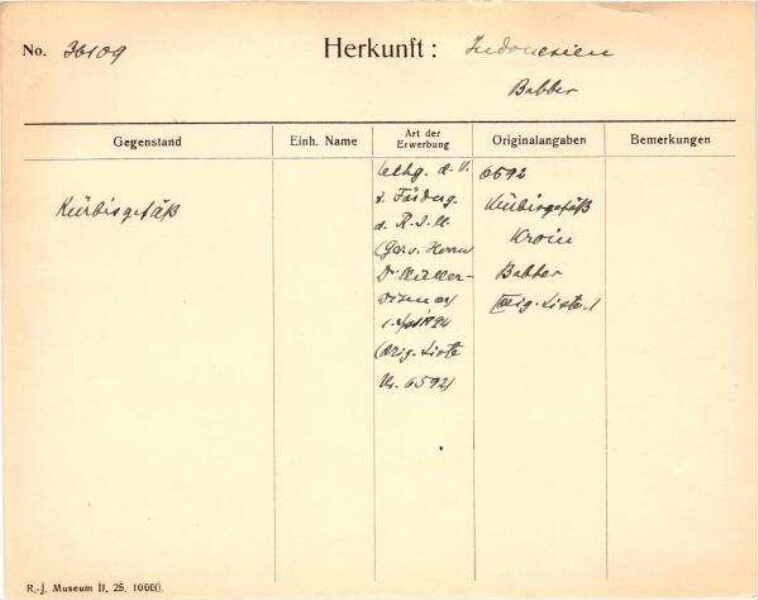 No. 36109
Herkunft: Indonesien
Babber
Gegenstand
Einh. Name
Art der Erwerbung
Originalangaben
Bemerkungen
Kürbisgefäß
d. V.
z. Förderg.
d. R. J. M.
Herrn
Dr Müller-
Wismar
(Orig. Liste
Nr. 6592)
6592
Kürbisgefäß
Kroin
Babber
(Orig. Liste.)
R.-J. Museum II. 25. 10000.